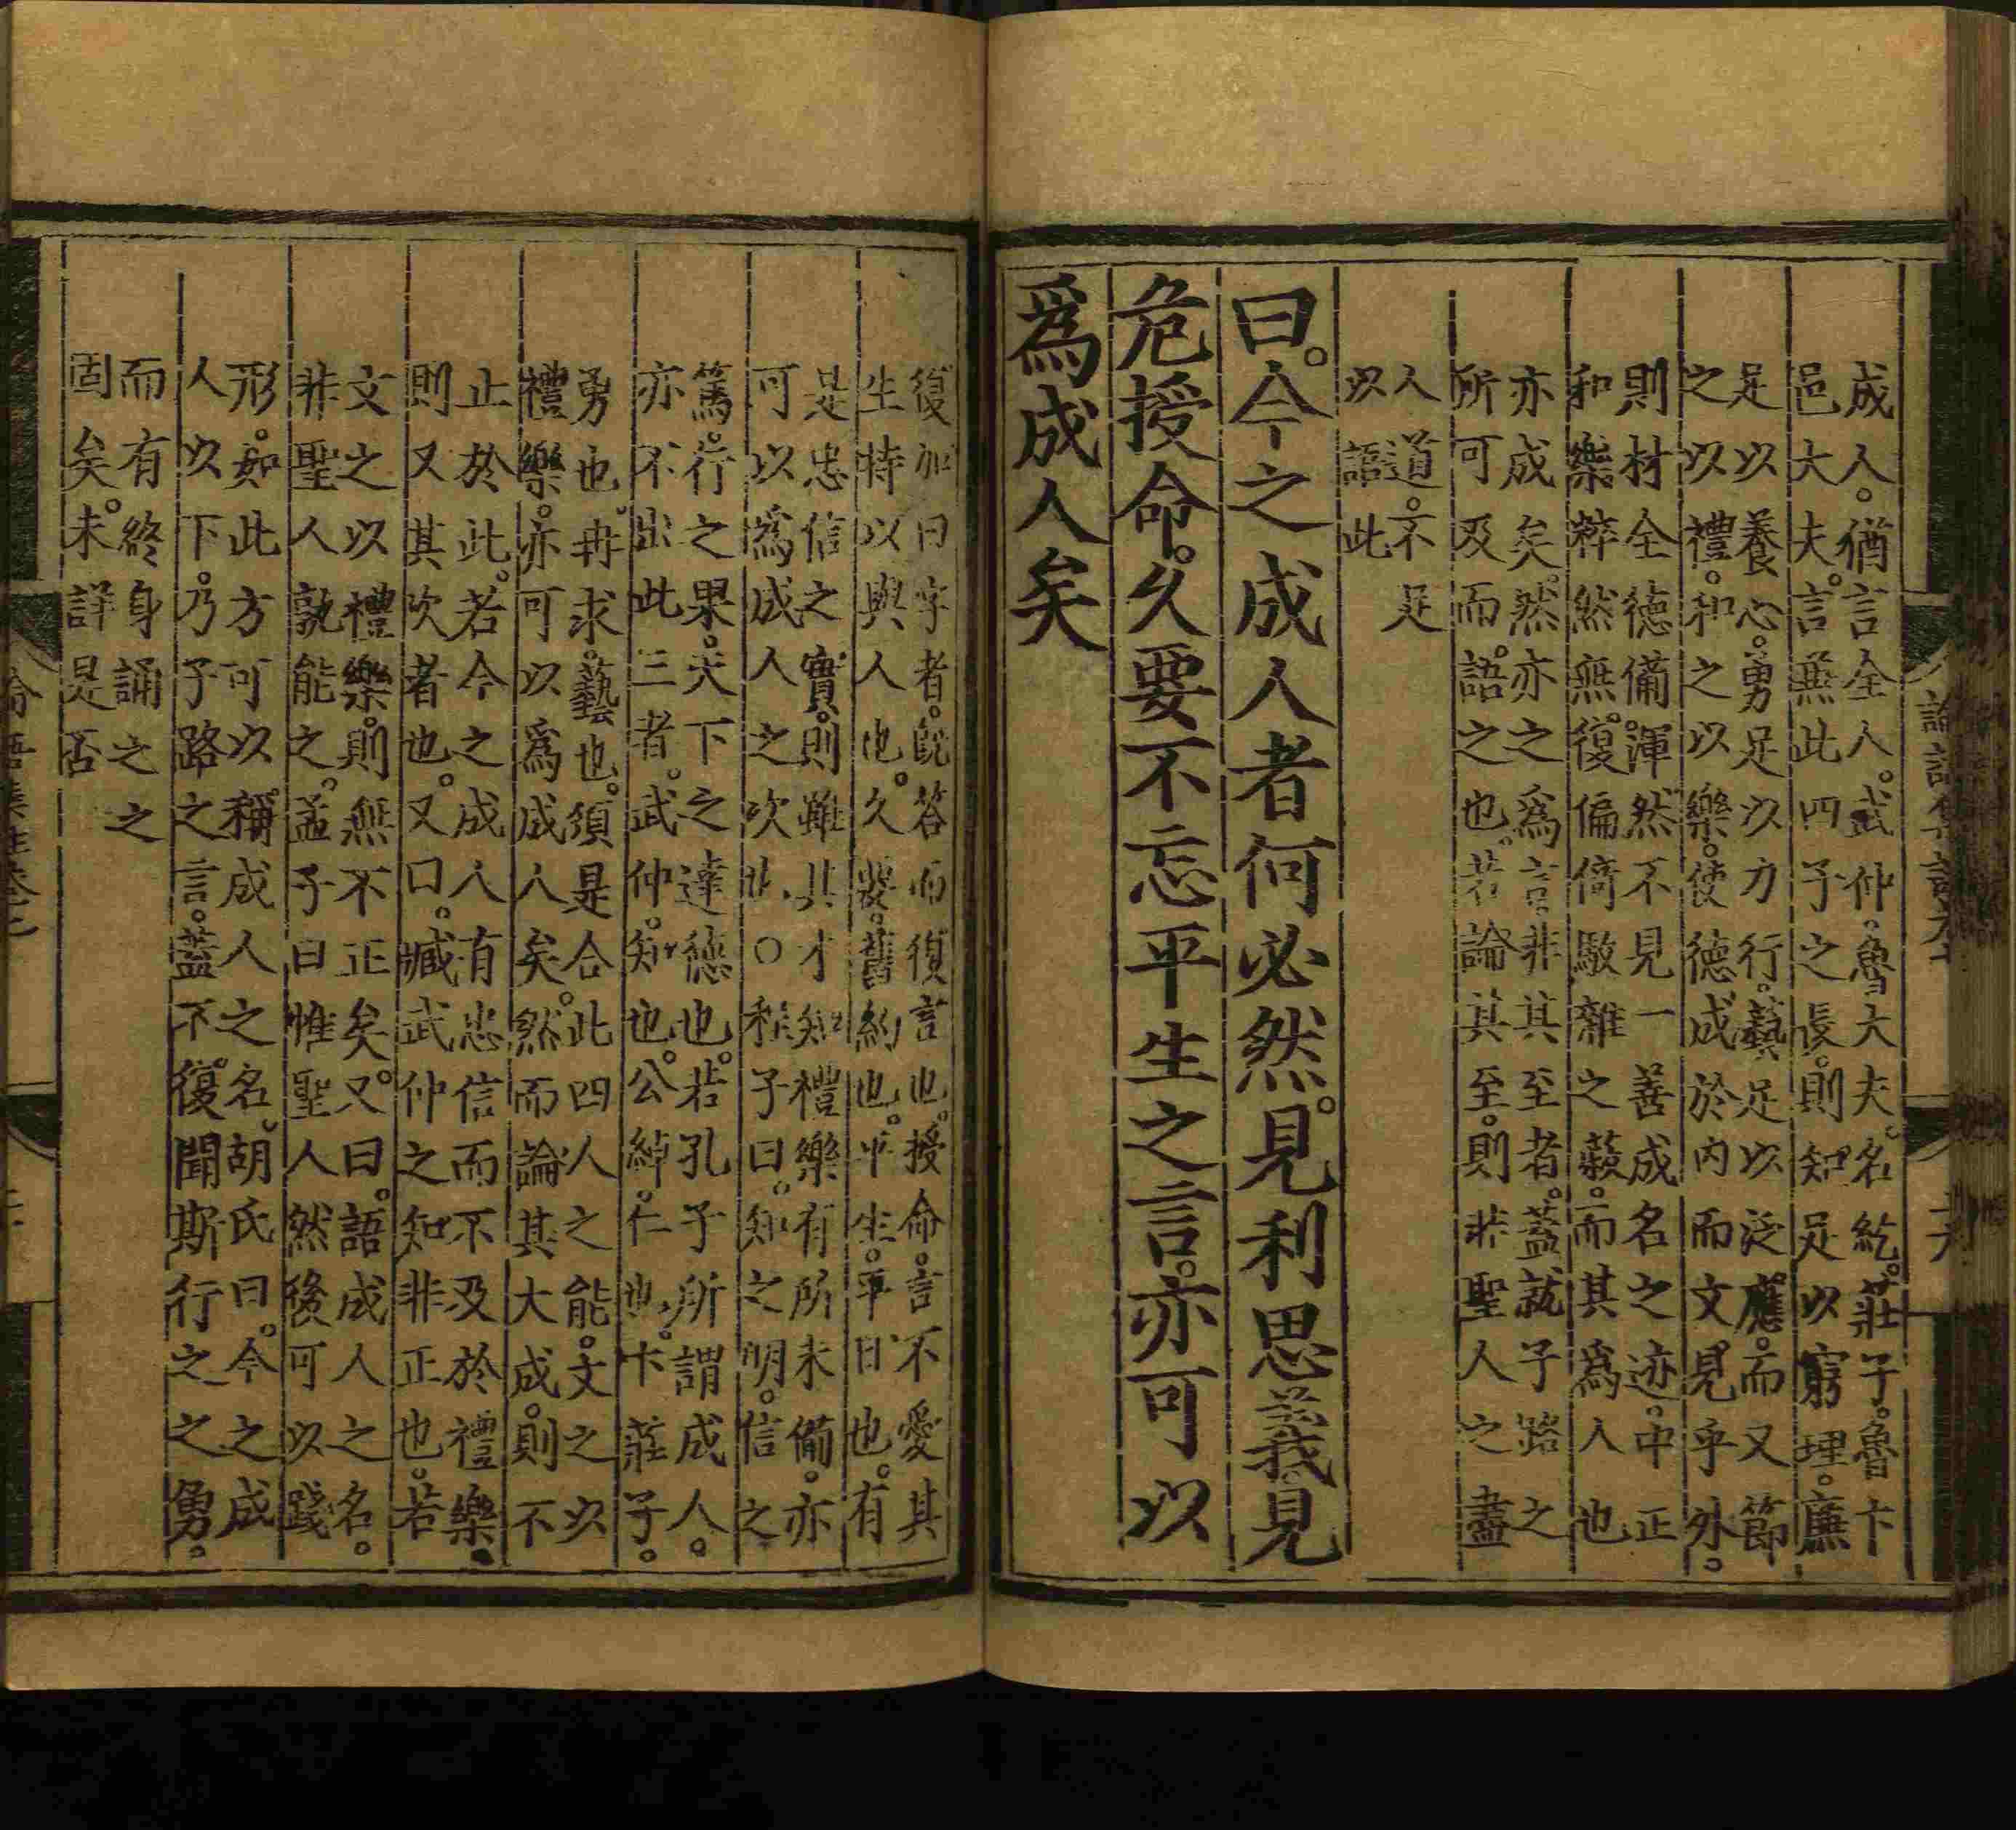 成人。猶言全人。武仲。魯大夫。名紇。莊子。魯卞
邑大夫。言無此四子之長。則知足以窮理。廉
足以養心。勇足以力行。藝足以泛應。而又節
之以禮。和之以樂。使德成於內而文見乎外。
則材全德備。渾然不見一善成名之迹。中正
和樂粹然無復偏倚駁雜之蔽。而其爲人也
亦成矣。然亦之爲言。非其至者。蓋就子路之
所可及而語之也。若論其至。則非聖人之盡
人道。不足
以語此
曰。今之成人者何必然。見利思義。見
危授命。久要不忘平生之言。亦可以
爲成人矣
復加曰字者。旣答而復言也。授命。言不愛其
生。持以與人也。久要。舊約也。平生。平日也。有
是忠信之實。則雖其才知禮樂有所未備。亦
可以爲成人之次也。○程子曰。知之明。信之
篤。行之果。天下之達德也。若孔子所謂成人。
亦不出此三者。武仲。知也。公綽。仁也。卞莊子。
勇也。冉求。藝也。須是合此四人之能。文之以
禮樂。亦可以爲成人矣。然而論其大成。則不
止於此。若今之成人。有忠信而不及於禮樂。
則又其次者也。又曰。臧武仲之知。非正也。若
文之以禮樂。則無不正矣。又曰。語成人之名。
非聖人孰能之。孟子曰惟聖人然後可以踐
形。如此方可以稱成人之名。胡氏曰。今之成
人以下。乃子路之言。蓋不復聞斯行之之勇。
而有終身誦之之
固矣。未詳是否